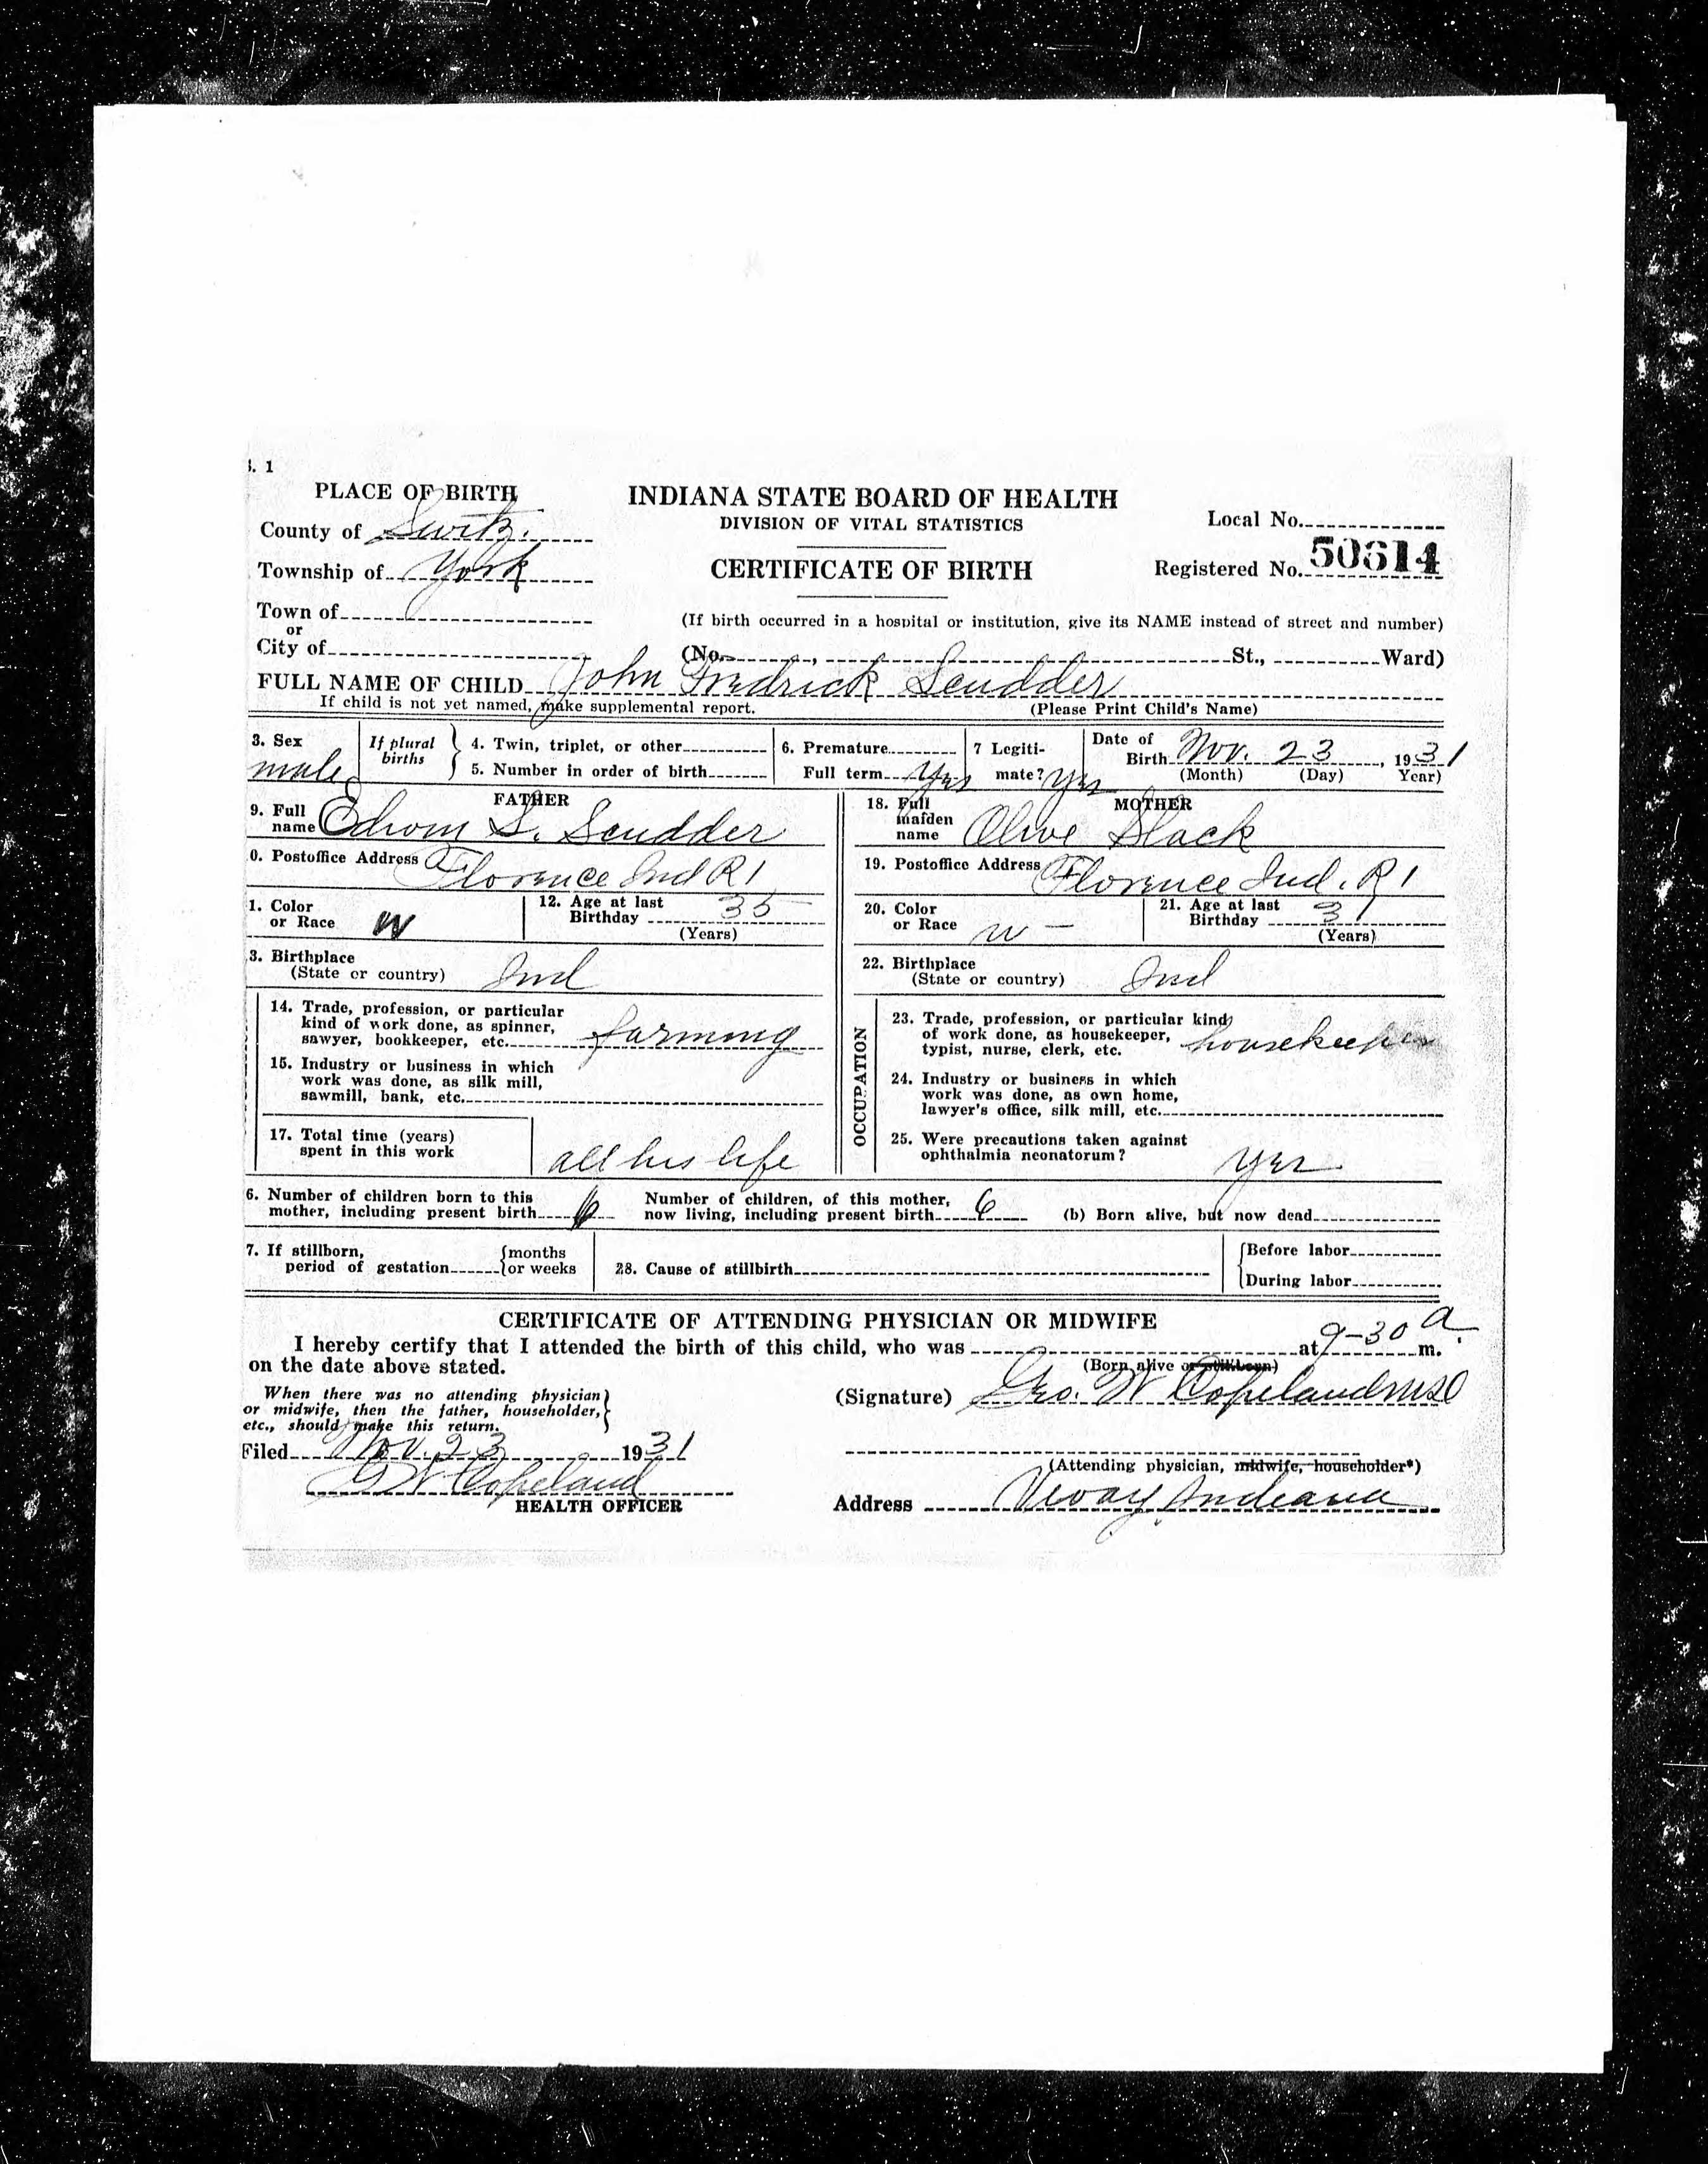 . 1
PLACE OF BIRTH
INDIANA STATE BOARD OF HEALTH
DIVISION OF VITAL STATISTICS
CERTIFICATE OF BIRTH
County of Switz.
Township of York
Town of
or
City of
Local No.
Registered No. 50614
(If birth occurred in a hospital or institution, give its NAME instead of street and number)
(No. , St., Ward)
FULL NAME OF CHILD John Fredrick Scudder
If child is not yet named, make supplemental report. (Please Print Child's Name)
3. Sex
male
If plural births
4. Twin, triplet, or other
5. Number in order of birth
6. Premature
Full term Yes
7 Legiti-
mate? Yes
Date of
Birth Nov. 23, 1931
(Month) (Day) Year)
FATHER
9. Full
name Edwin S. Scudder
0. Postoffice Address Florence Ind R 1
1. Color
or Race W
12. Age at last
Birthday 35
(Years)
3. Birthplace
(State or country) Ind
14. Trade, profession, or particular
kind of work done, as spinner,
sawyer, bookkeeper, etc. farming
15. Industry or business in which
work was done, as silk mill,
sawmill, bank, etc.
17. Total time (years)
spent in this work all his life
MOTHER
18. Full
maiden
name Olive Slack
19. Postoffice Address Florence Ind. R 1
20. Color
or Race W -
21. Age at last
Birthday 31
(Years)
22. Birthplace
(State or country) Ind
OCCUPATION
23. Trade, profession, or particular kind
of work done, as housekeeper,
typist, nurse, clerk, etc. housekeeper
24. Industry or business in which
work was done, as own home,
lawyer's office, silk mill, etc.
25. Were precautions taken against
ophthalmia neonatorum? yes
6. Number of children born to this
mother, including present birth 6
Number of children, of this mother,
now living, including present birth 6
(b) Born alive, but now dead
7. If stillborn,
period of gestation months
or weeks
28. Cause of stillbirth
Before labor
During labor
CERTIFICATE OF ATTENDING PHYSICIAN OR MIDWIFE
I hereby certify that I attended the birth of this child, who was at 9-30 a. m.
on the date above stated. (Born alive or stillborn)
When there was no attending physician
or midwife, then the father, householder,
etc., should make this return.
(Signature) Geo. W Copeland MD
Filed Nov. 23 1931
G W Copeland
HEALTH OFFICER
(Attending physician, midwife, householder*)
Address Vevay Indiana